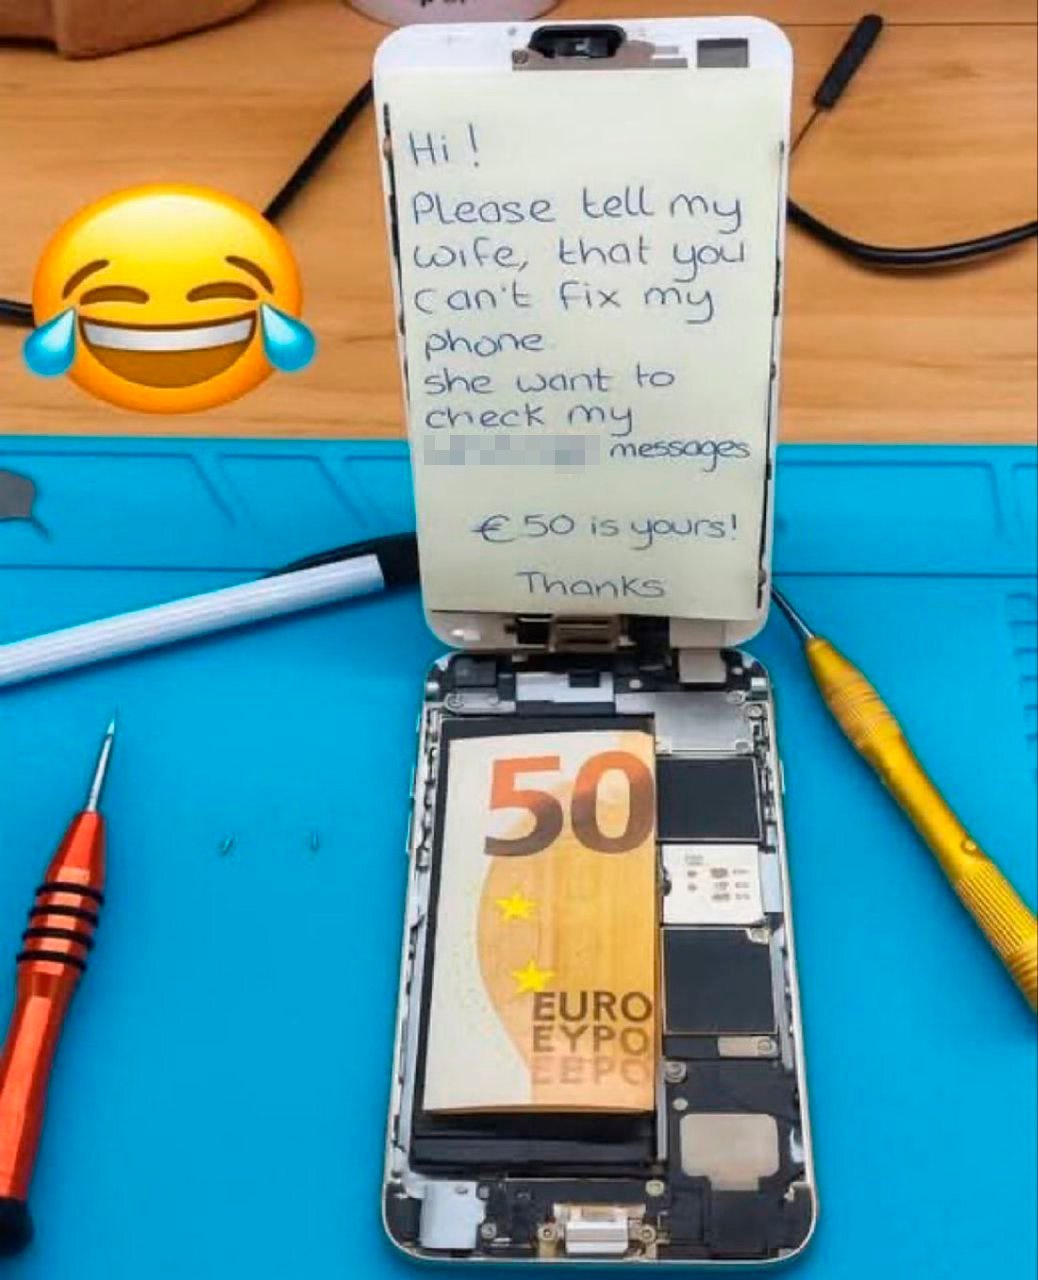 Hi !
Please tell my
wife, that you
can't fix my
phone
she want to
check my
messages
€ 50 is yours!
Thanks
50
EURO
EYPO
ЕВРО